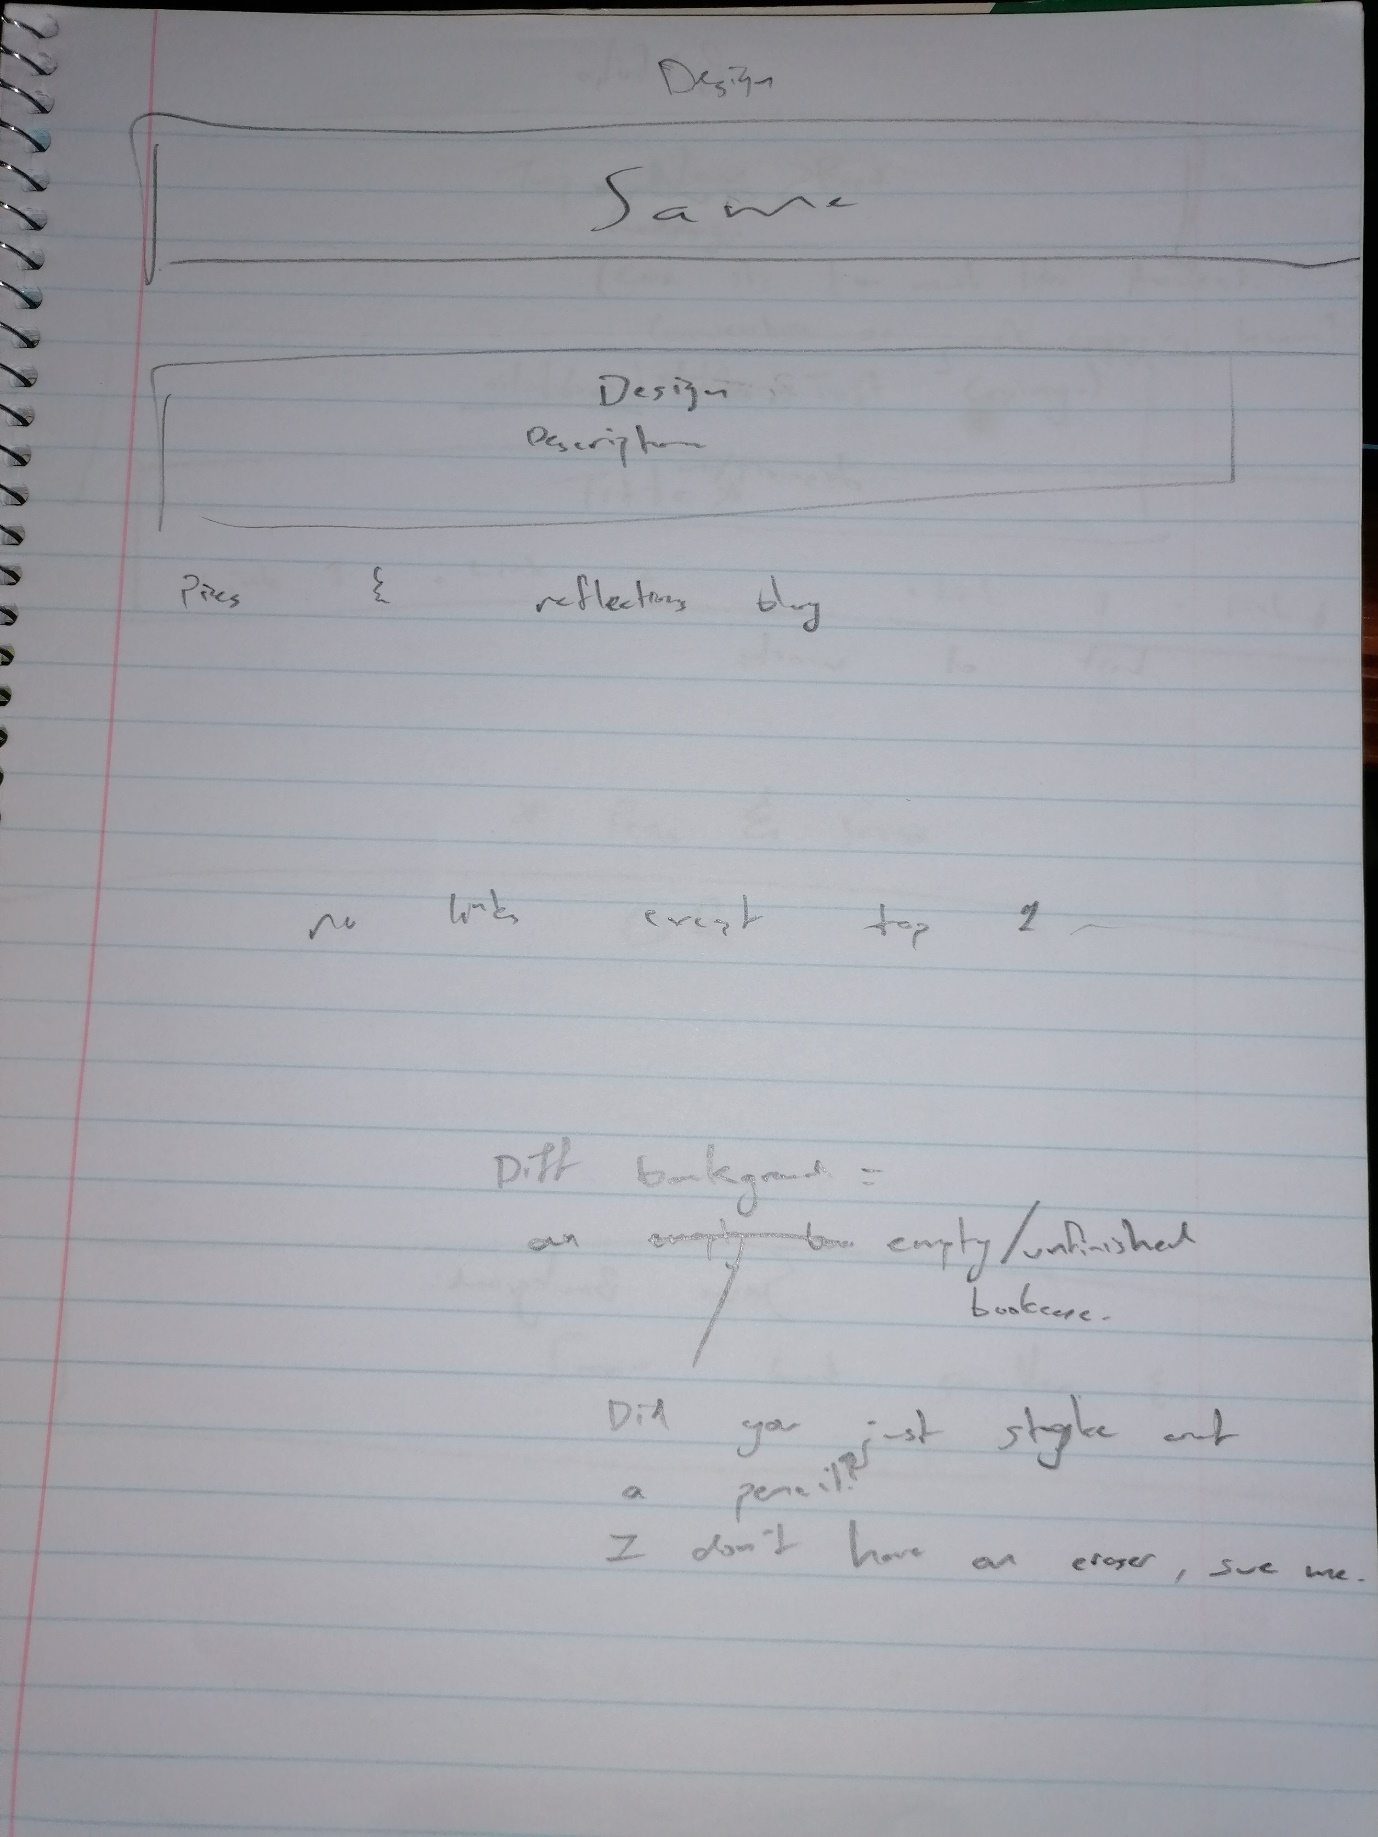 Design
Same
Design
Description
Pics & reflections blog
no links except top 2
Diff background =
an empty/unfinished
bookcase.
Did you just stroke out
a pencil?
I don't have an eraser, sue me.